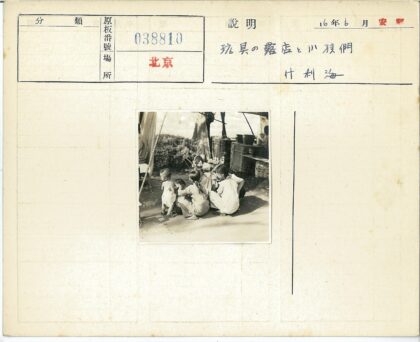 分類
原板番號
038810
場所
北京
說明
16年6月
玩具の露店と小孩們
什刹海